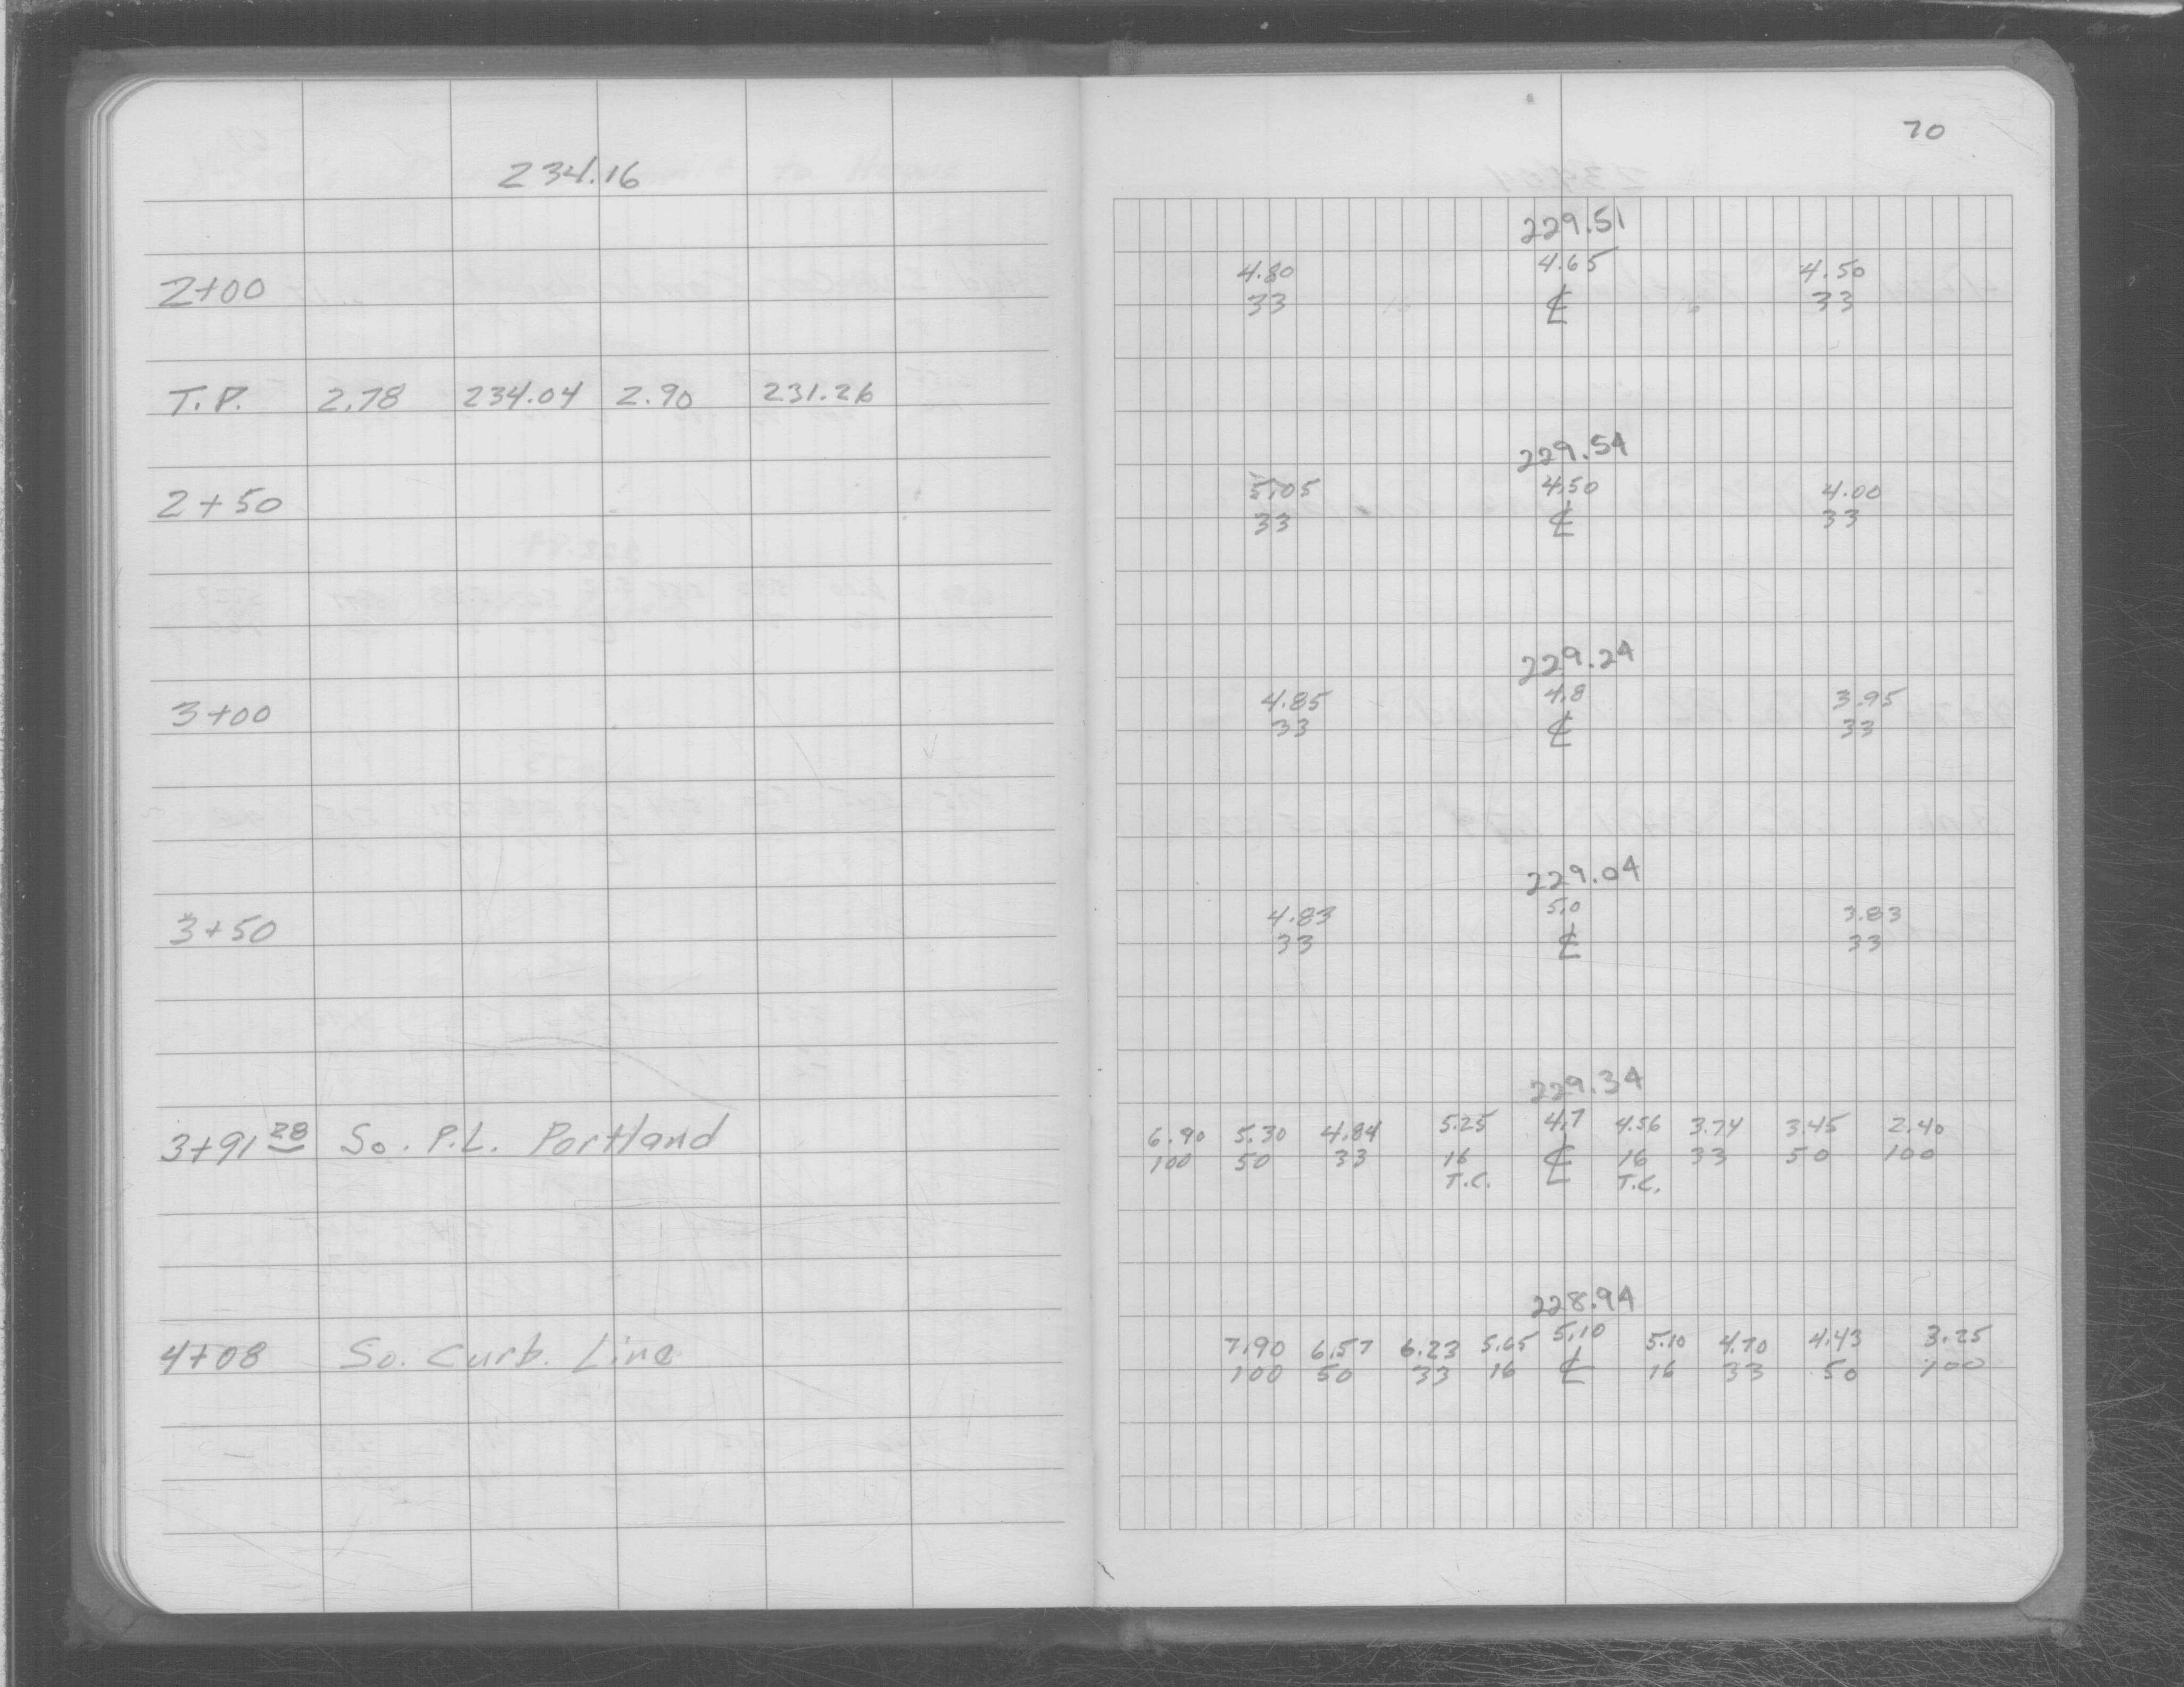 70
234.16
229.51
4.80 4.65 4.50
2+00 33 ℄ 33
T.P. 2.78 234.04 2.90 231.26
229.54
5.05 4.50 4.00
2+50 33 ℄ 33
229.24
4.85 4.8 3.95
3+00 33 ℄ 33
229.04
4.83 5.0 3.83
3+50 33 ℄ 33
229.34
6.90 5.30 4.84 5.25 4.7 4.56 3.74 3.45 2.40
3+91 28 So. P.L. Portland 100 50 33 16 ℄ 16 33 50 100
T.C. T.C.
228.94
7.90 6.57 6.23 5.65 5.10 5.10 4.70 4.43 3.25
4+08 So. Curb. Line 100 50 33 16 ℄ 16 33 50 100